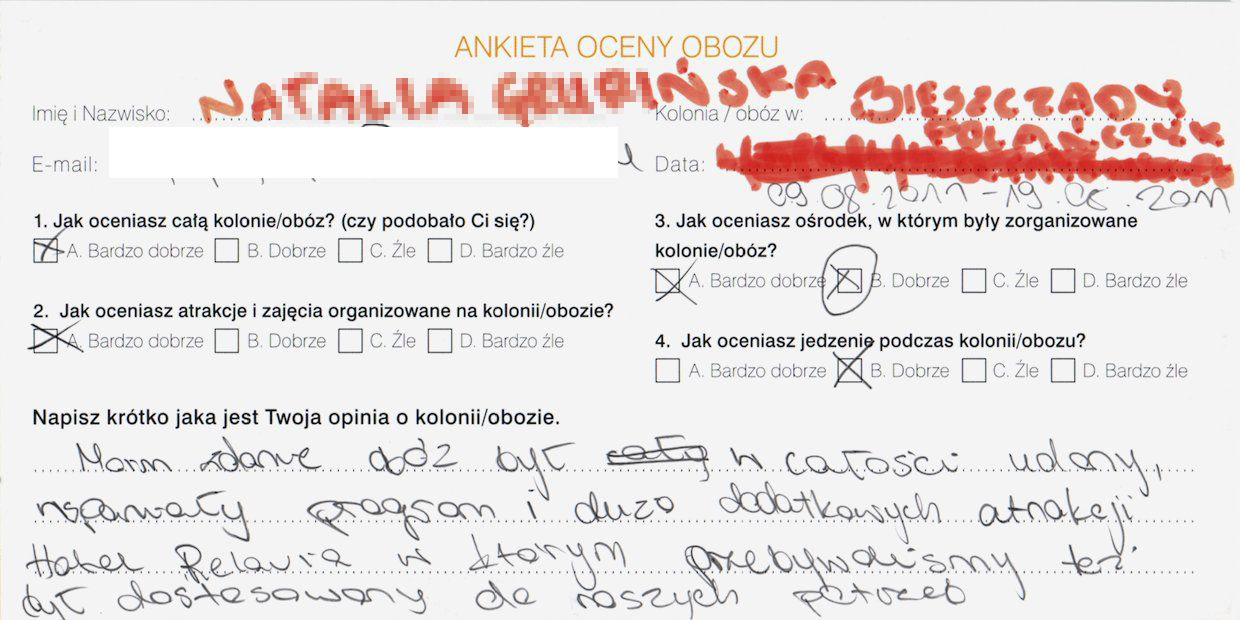 ANKIETA OCENY OBOZU
Imię i Nazwisko: NATALIA Kolonia / obóz w: BIESZCZADY
POLAŃCZYK
E-mail: Data:
09.08.2011 - 19.08.2011
1. Jak oceniasz całą kolonie/obóz? (czy podobało Ci się?)
A. Bardzo dobrze B. Dobrze C. Źle D. Bardzo źle
2. Jak oceniasz atrakcje i zajęcia organizowane na kolonii/obozie?
A. Bardzo dobrze B. Dobrze C. Źle D. Bardzo źle
3. Jak oceniasz ośrodek, w którym były zorganizowane
kolonie/obóz?
A. Bardzo dobrze B. Dobrze C. Źle D. Bardzo źle
4. Jak oceniasz jedzenie podczas kolonii/obozu?
A. Bardzo dobrze B. Dobrze C. Źle D. Bardzo źle
Napisz krótko jaka jest Twoja opinia o kolonii/obozie.
Mam zdanie obóz był cały w całości udany,
wspaniały program i dużo dodatkowych atrakcji
Hotel Relavia w którym przebywaliśmy też
był dostosowany do naszych potrzeb